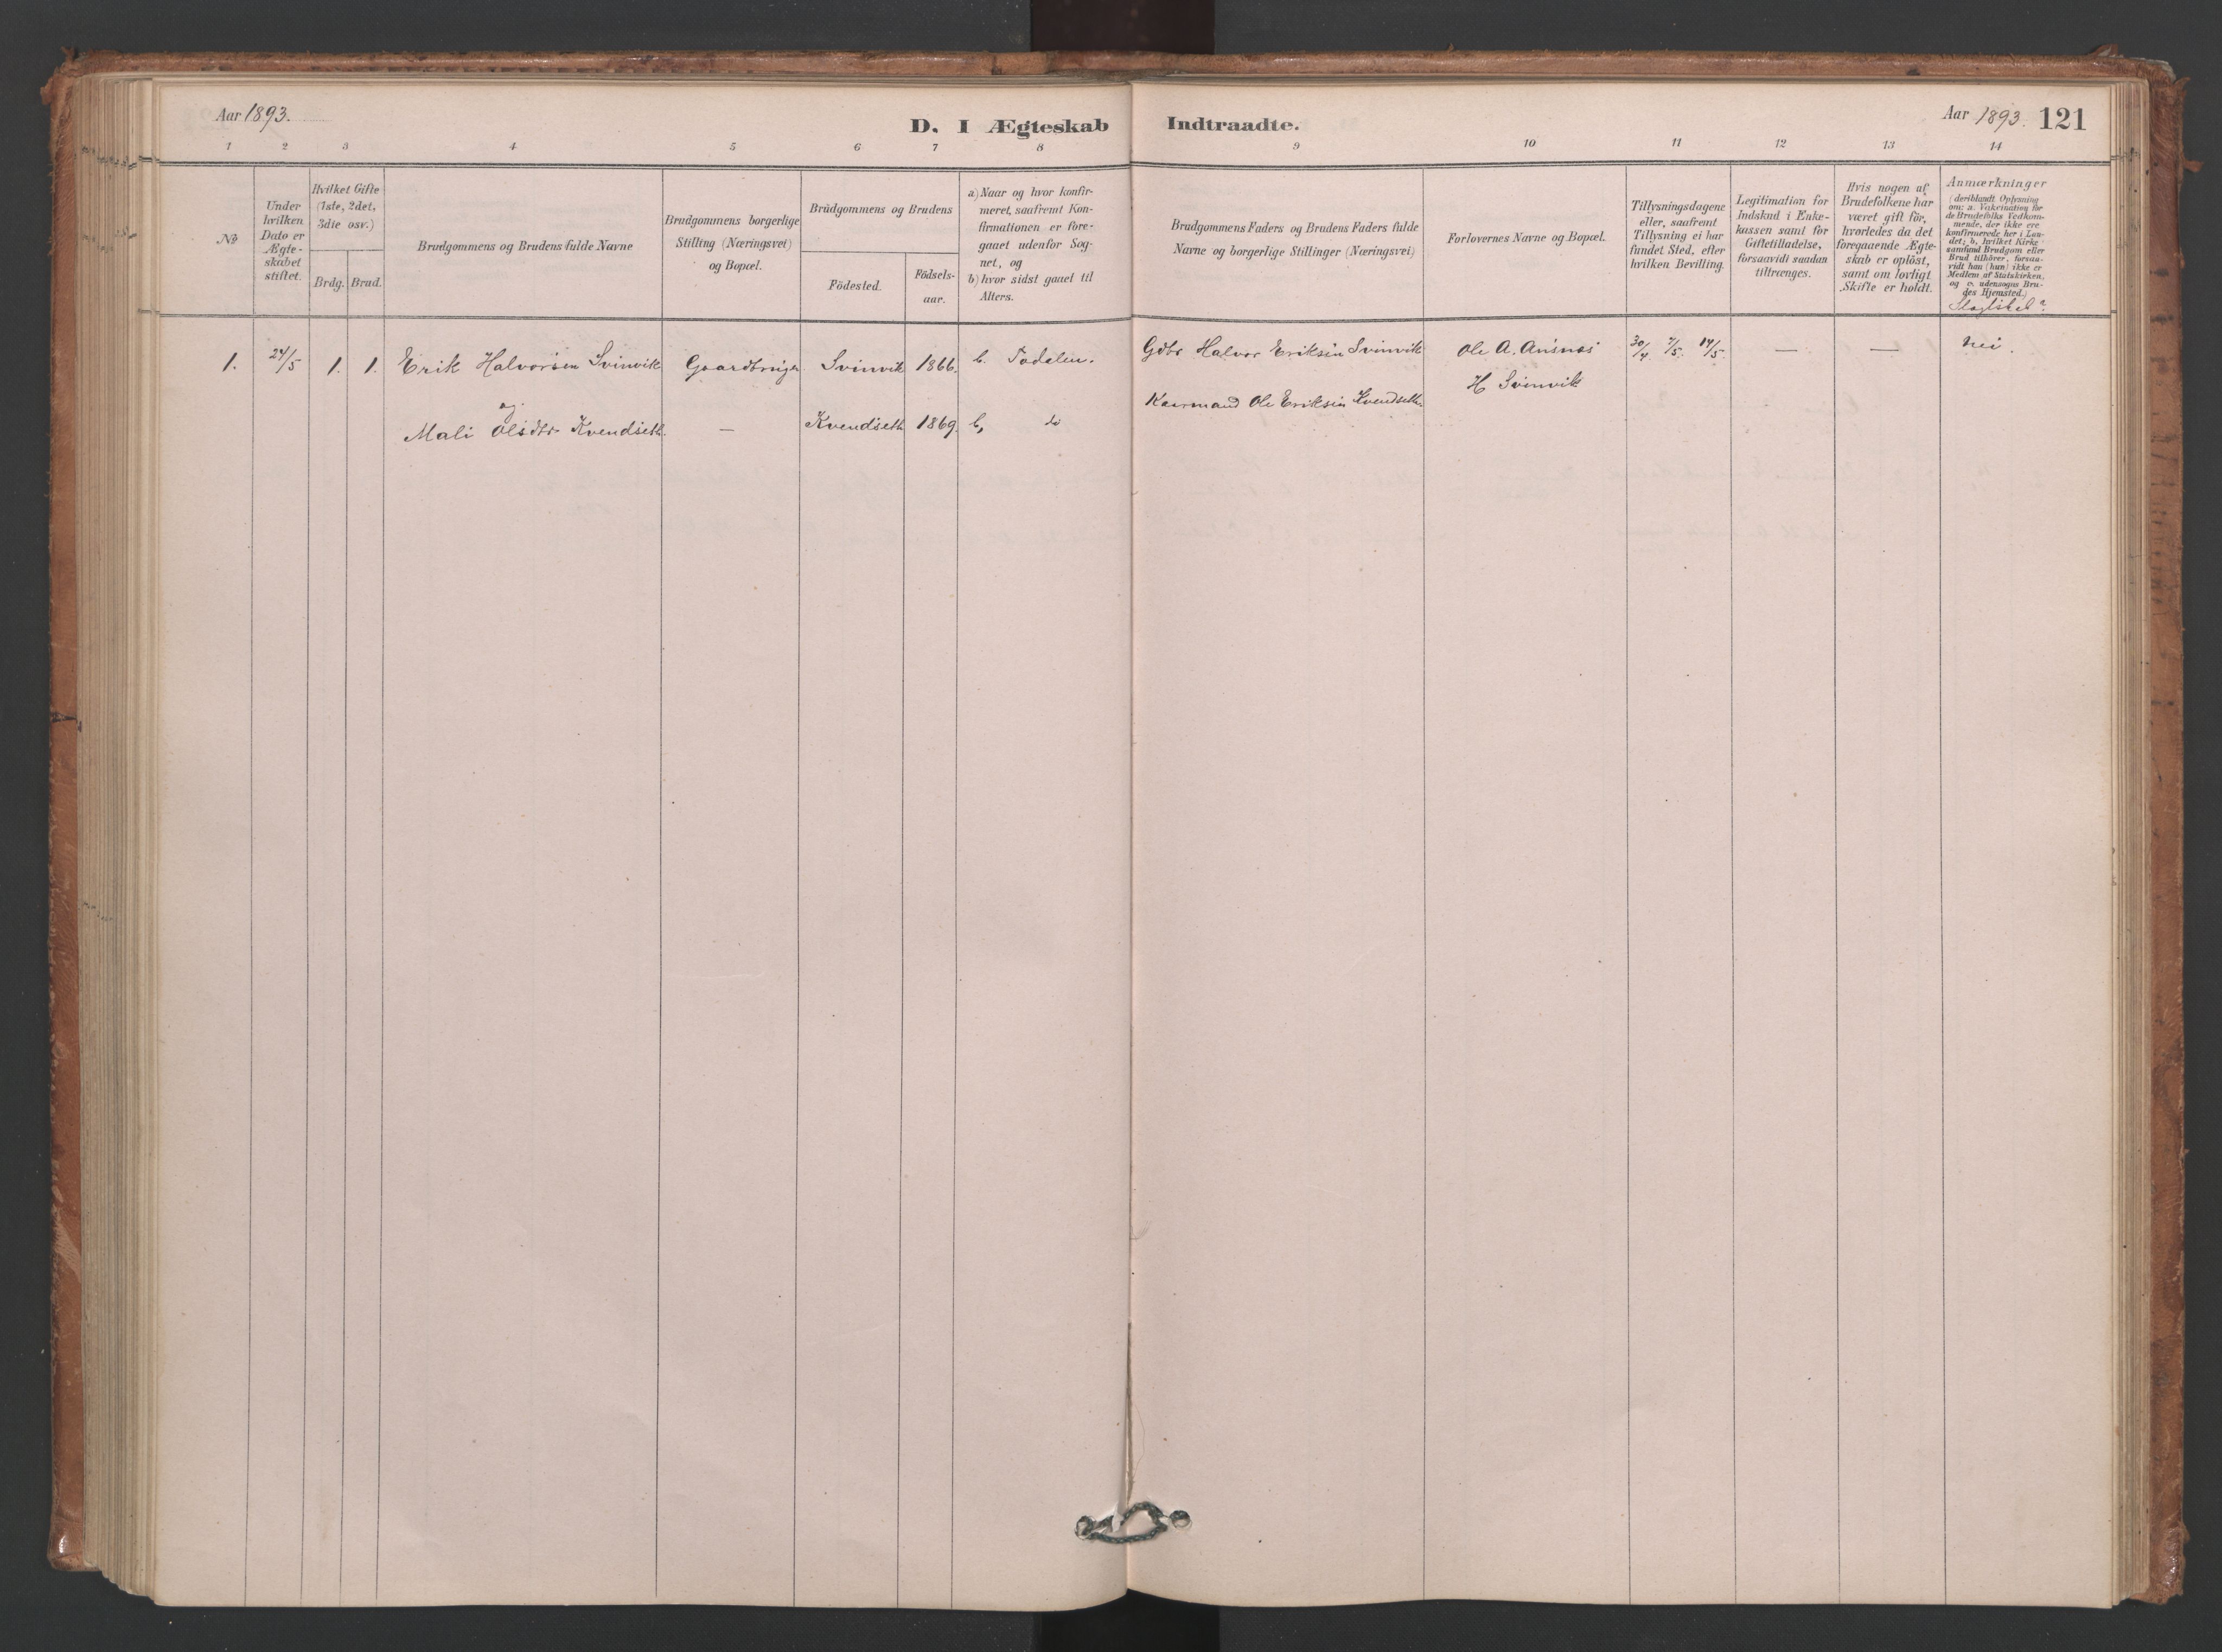 Aar 1893.
D. I Ægteskab Indtraadte.
Aar 1893. 121
1 2 3 4 5 6 7 8 9 10 11 12 13 14
No
Under hvilken Dato er Ægte-
skabet stiftet.
Hvilket Gifte (1ste, 2det, 3die osv.)
Brdg. Brud.
Brudgommens og Brudens fulde Navne
Brudgommens borgerlige
Stilling (Næringsvei)
og Bopæl.
Brudgommens og Brudens
Födested.
Födsels-
aar.
a) Naar og hvor konfir-
meret, saafremt Kon-
firmationen er fore-
gaaet udenfor Sog-
net, og
b) hvor sidst gaaet til
Alters.
Brudgommens Faders og Brudens Faders fulde
Navne og borgerlige Stillinger (Næringsvei)
Forlovernes Navne og Bopæl.
Tillysningsdagene
eller, saafremt
Tillysning ei har
fundet Sted, efter
hvilken Bevilling.
Legitimation for
Indskud i Enke-
kassen samt for
Giftetilladelse,
forsaavidt saadan
tiltrænges.
Hvis nogen af
Brudefolkene har
været gift för,
hvorledes da det
foregaaende Ægte-
skab er oplöst,
samt om lovligt
Skifte er holdt.
Anmærkninger
(deriblandt Oplysning
om: a. Vakcination for
de Brudefolks Vedkom-
mende, der ikke ere
konfirmerede her i Lan-
det; b. hvilket Kirke-
samfund Brudgom eller
Brud tilhörer, forsaa-
vidt han (hun) ikke er
Medlem af Statskirken,
og c. udensogns Bru-
des Hjemsted.)
Slægtskab?
1. 24/5 1. 1. Erik Halvorsen Svinvik Gaardbruger Svinvik 1866. b. Todalen. Gdbr Halvor Eriksen Svinvik Ole A. Ansnæs 30/4 7/5. 14/5. — — Nei.
H Svinvik
Kaarmand Ole Eriksen Kvendseth
og
Mali Olsdtr Kvendseth. — Kvendseth 1869. b, do